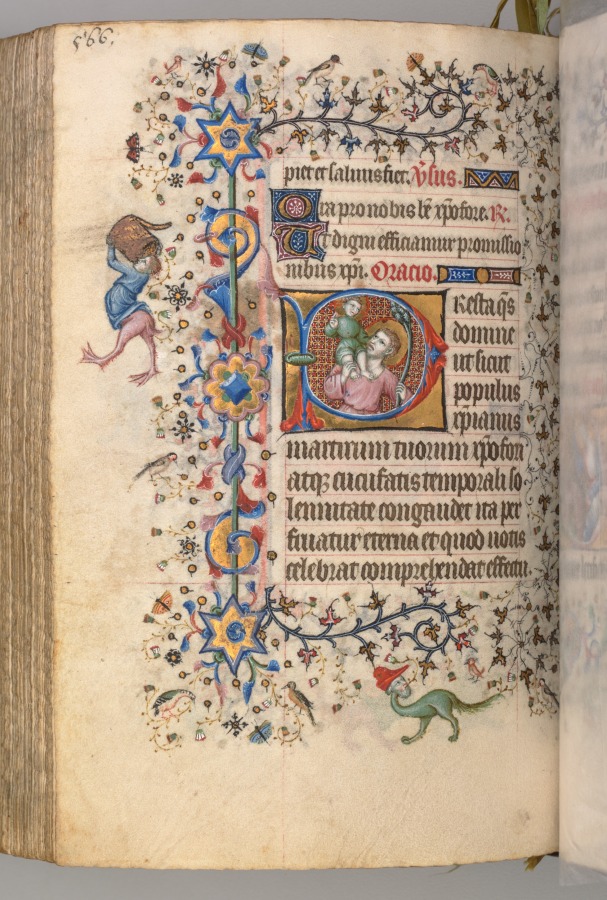 566.
piet et salvus fiet. V̄sus.
Ora pro nobis be xp̄ofore. R.
Ut digni efficiamur promissio
nibus xp̄i. Oracio.
Presta q̄s
domine
ut sicut
populus
xp̄ianus
martirum tuorum xp̄ofori
atq; cucufatis temporali so
lennitate congaudet ita per
fruatur eterna et quod votis
celebrat comprehendat effectu.